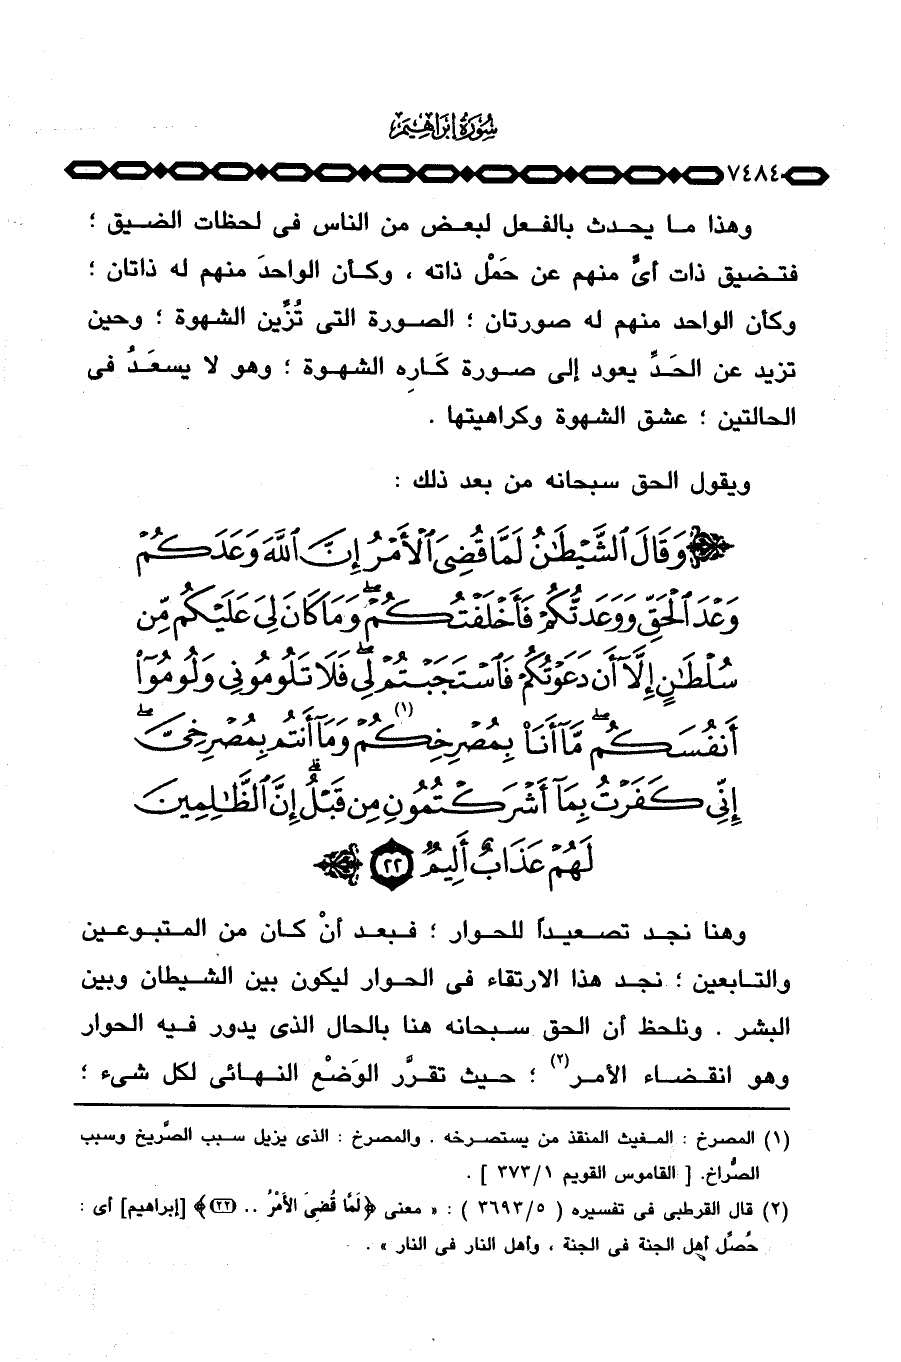 سُورَةُ إِبْرَاهِيمَ
٧٤٨٤
وهذا ما يحدث بالفعل لبعض من الناس فى لحظات الضيق ؛
فتضيق ذات أىٍّ منهم عن حَمْل ذاته ، وكأن الواحدَ منهم له ذاتان ؛
وكأن الواحد منهم له صورتان ؛ الصورة التى تُزَّين الشهوة ؛ وحين
تزيد عن الحَدِّ يعود إلى صورة كَاره الشهوة ؛ وهو لا يسعَدُ فى
الحالتين ؛ عشق الشهوة وكراهيتها .
ويقول الحق سبحانه من بعد ذلك :
﴿ وَقَالَ ٱلشَّيْطَٰنُ لَمَّا قُضِىَ ٱلْأَمْرُ إِنَّ ٱللَّهَ وَعَدَكُمْ
وَعْدَ ٱلْحَقِّ وَوَعَدتُّكُمْ فَأَخْلَفْتُكُمْ ۖ وَمَا كَانَ لِىَ عَلَيْكُم مِّن
سُلْطَٰنٍ إِلَّآ أَن دَعَوْتُكُمْ فَٱسْتَجَبْتُمْ لِى ۖ فَلَا تَلُومُونِى وَلُومُوٓا۟
أَنفُسَكُم ۖ مَّآ أَنَا۠ بِمُصْرِخِكُمْ (١) وَمَآ أَنتُم بِمُصْرِخِىَّ ۖ
إِنِّى كَفَرْتُ بِمَآ أَشْرَكْتُمُونِ مِن قَبْلُ ۗ إِنَّ ٱلظَّٰلِمِينَ
لَهُمْ عَذَابٌ أَلِيمٌ ٢٢ ﴾
وهنا نجد تصعيداً للحوار ؛ فبعد أنْ كان من المتبوعين
والتابعين ؛ نجد هذا الارتقاء فى الحوار ليكون بين الشيطان وبين
البشر . ونلحظ أن الحق سبحانه هنا بالحال الذى يدور فيه الحوار
وهو انقضاء الأمر(٢) ؛ حيث تقرَّر الوَضْع النهائى لكل شىء ؛
(١) المصرخ : المغيث المنقذ من يستصرخه . والمصرخ : الذى يزيل سبب الصَّريخ وسبب
الصُّراخ. [ القاموس القويم ٣٧٣/١ ] .
(٢) قال القرطبى فى تفسيره ( ٣٦٩٣/٥ ) : « معنى ﴿لَمَّا قُضِىَ الأَمْرُ .. (٢٢)﴾ [إبراهيم] أى :
حُصِّل أهل الجنة فى الجنة ، وأهل النار فى النار » .